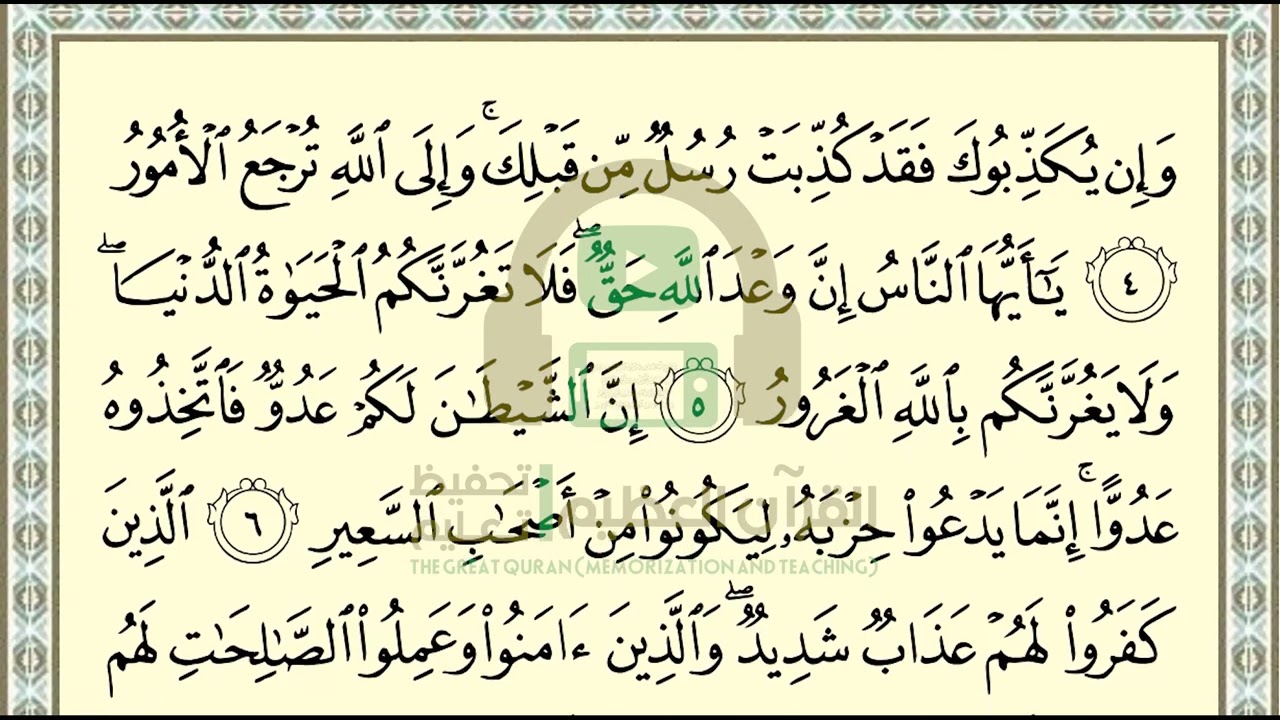 وَإِن يُكَذِّبُوكَ فَقَدۡ كُذِّبَتۡ رُسُلٞ مِّن قَبۡلِكَۚ وَإِلَى ٱللَّهِ تُرۡجَعُ ٱلۡأُمُورُ
٤ يَٰٓأَيُّهَا ٱلنَّاسُ إِنَّ وَعۡدَ ٱللَّهِ حَقّٞۖ فَلَا تَغُرَّنَّكُمُ ٱلۡحَيَوٰةُ ٱلدُّنۡيَاۖ
وَلَا يَغُرَّنَّكُم بِٱللَّهِ ٱلۡغَرُورُ ٥ إِنَّ ٱلشَّيۡطَٰنَ لَكُمۡ عَدُوّٞ فَٱتَّخِذُوهُ
عَدُوًّاۚ إِنَّمَا يَدۡعُواْ حِزۡبَهُۥ لِيَكُونُواْ مِنۡ أَصۡحَٰبِ ٱلسَّعِيرِ ٦ ٱلَّذِينَ
كَفَرُواْ لَهُمۡ عَذَابٞ شَدِيدٞۖ وَٱلَّذِينَ ءَامَنُواْ وَعَمِلُواْ ٱلصَّٰلِحَٰتِ لَهُم
القرآن العظيم | تحفيظ تعليم
THE GREAT QURAN (MEMORIZATION AND TEACHING)